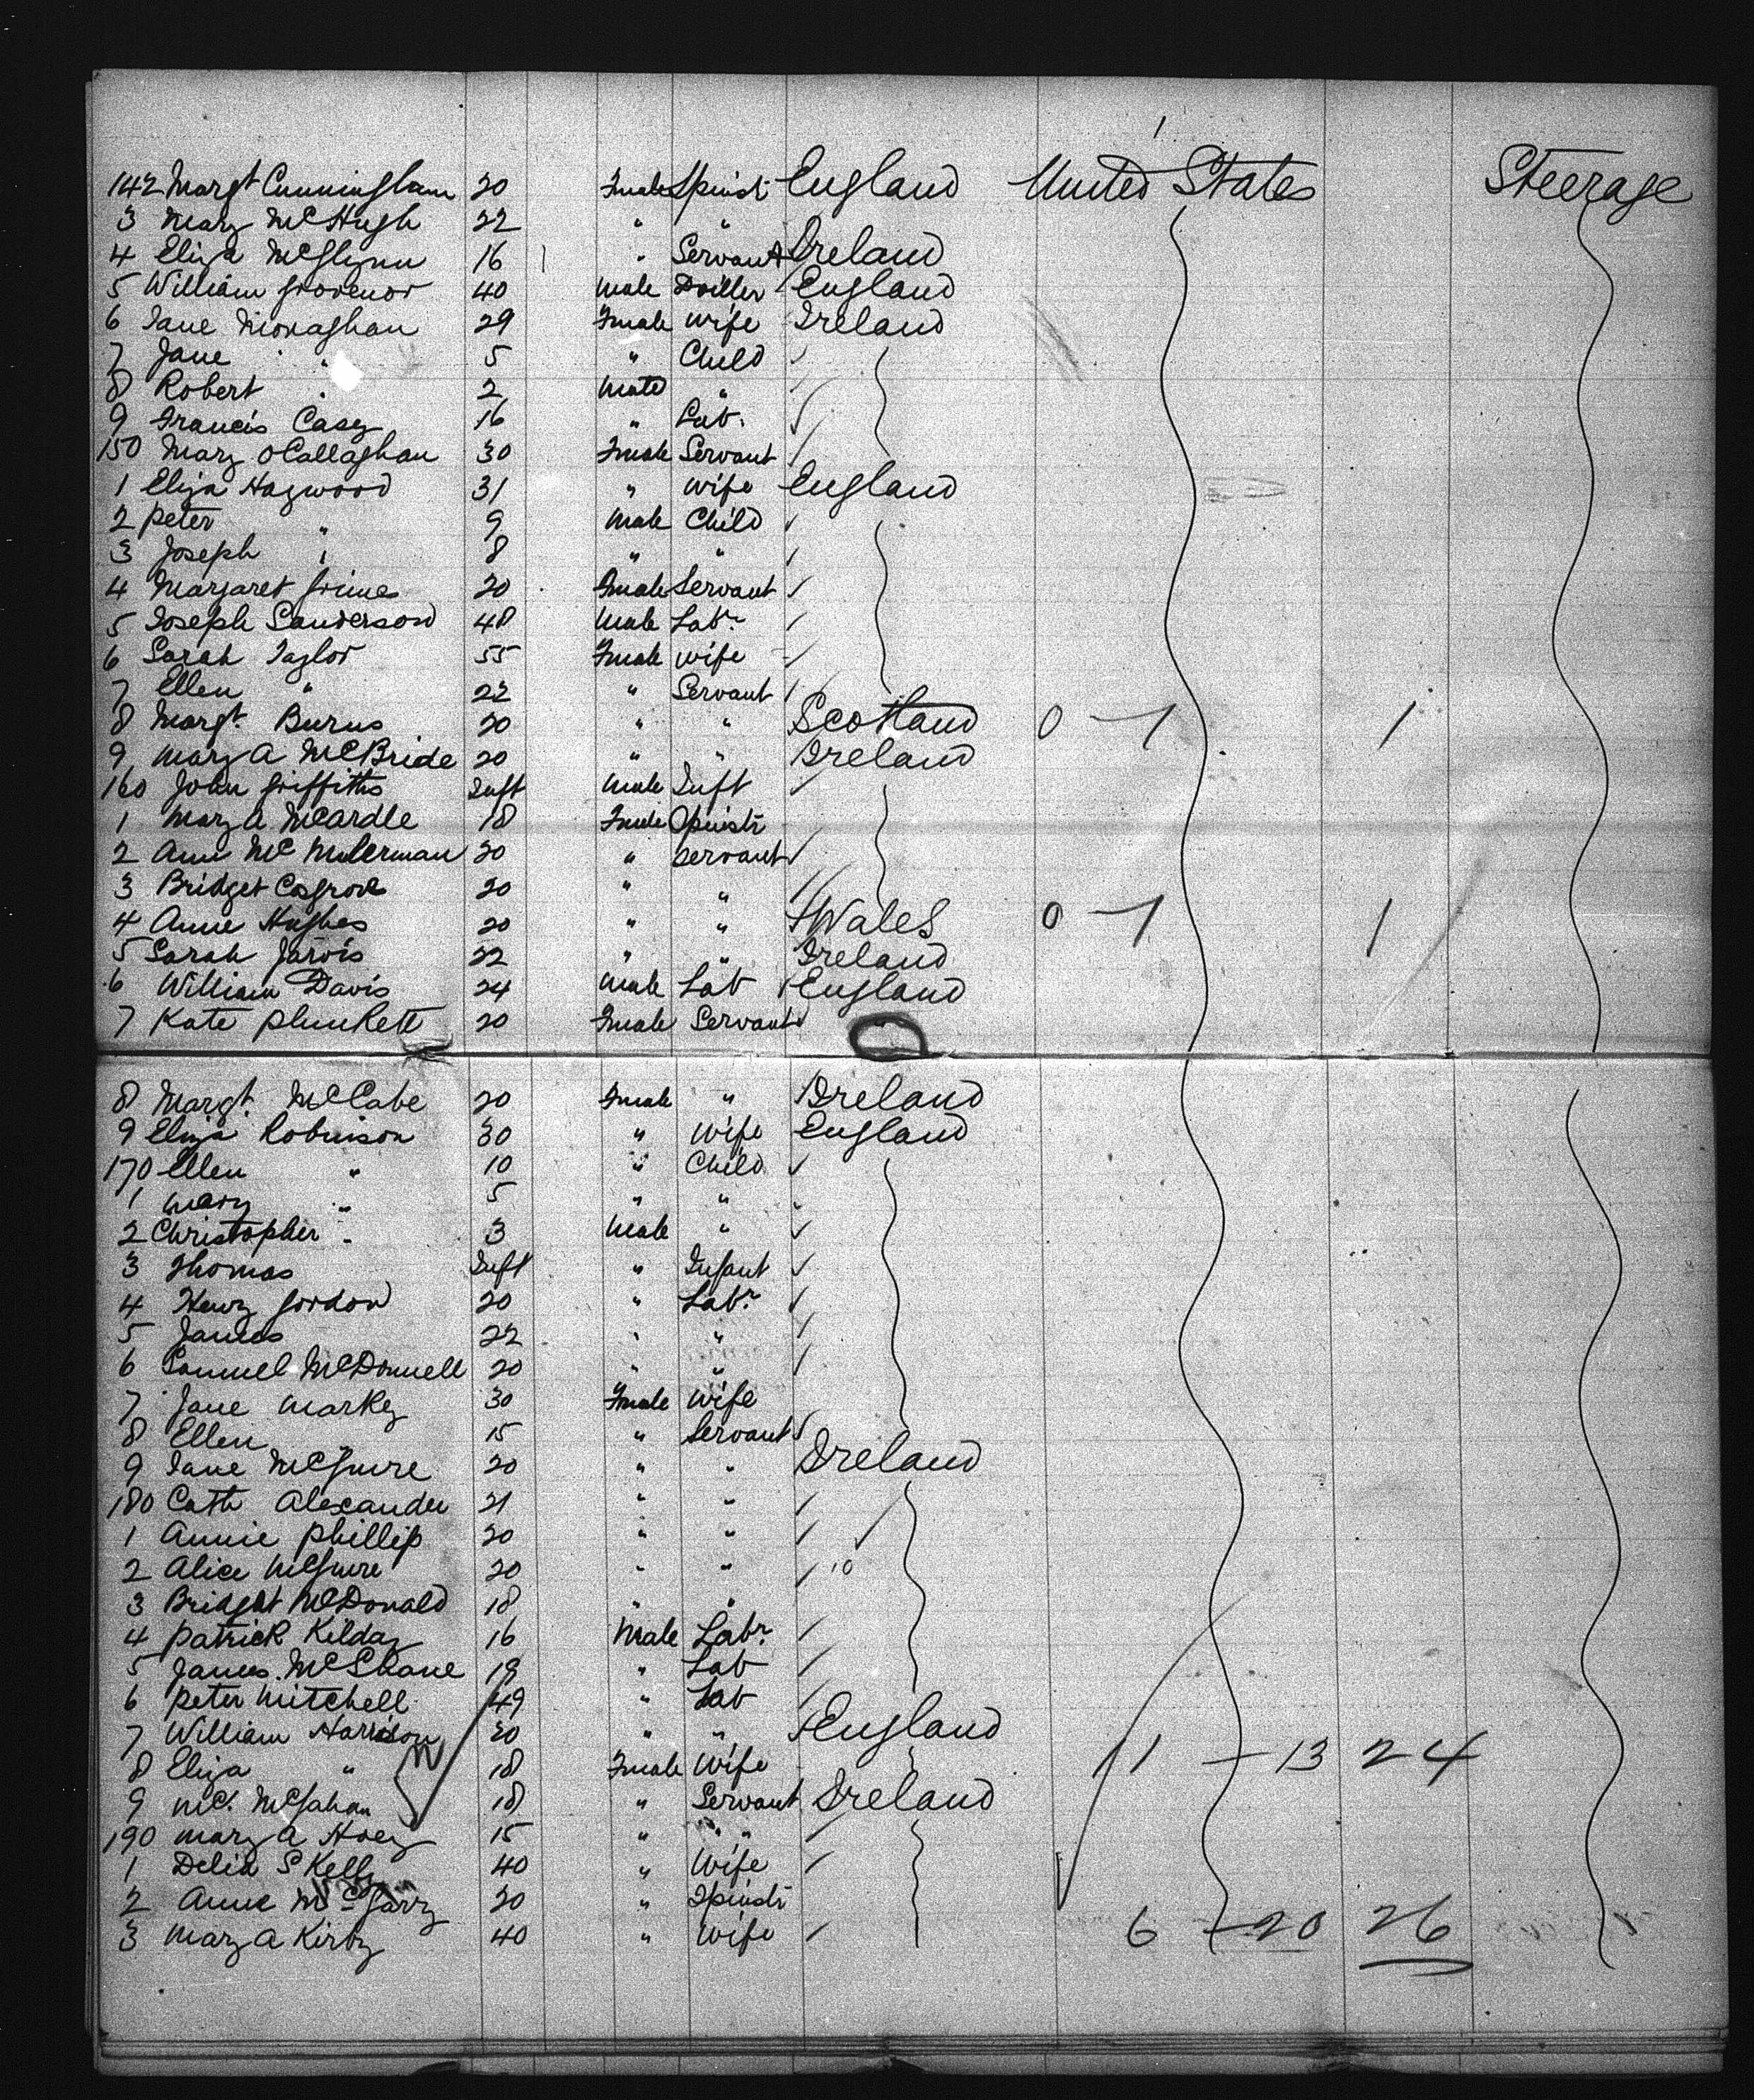 142 Margt Cunningham 20 Female Spinstr England United States Steerage
3 Mary McHugh 22 " "
4 Eliza McGlynn 16 " Servant Ireland
5 William Grovenor 40 Male Driller England
6 Jane Monaghan 29 Female Wife Ireland
7 Jane " 5 " Child
8 Robert " 2 Male "
9 Francis Casey 16 " Lab.
150 Mary OCallaghan 30 Female Servant
1 Eliza Haywood 31 " Wife England
2 Peter " 9 Male Child
3 Joseph " 8 " "
4 Margaret Grimes 20 Female Servant
5 Joseph Sanderson 48 Male Labr
6 Sarah Taylor 55 Female Wife
7 Ellen " 22 " Servant
8 Margt. Burns 20 " " Scotland 0 - 1 1
9 Mary A McBride 20 " " Ireland
160 John Griffiths Inft Male Inft
1 Mary A McArdle 18 Female Spinstr
2 Ann Mc 20 " Servant
3 Bridget Cosgrove 20 " "
4 Anne Hughes 20 " " Wales 0 - 1 1
5 Sarah Jarvis 22 " " Ireland
6 William Davis 24 Male Lab England
7 Kate Plunkett 20 Female Servant "
8 Margt. McCabe 20 Female " Ireland
9 Eliza Robinson 30 " Wife England
170 Ellen " 10 " Child
1 Mary " 5 " "
2 Christopher " 3 Male "
3 Thomas Inft " Infant
4 Henry Gordon 20 " Labr
5 James 22 " "
6 Samuel McDonnell 20 " "
7 Jane Markey 30 Female Wife
8 Ellen " 15 " Servant
9 Jane McGuire 20 " " Ireland
180 Cath Alexander 21 " "
1 Annie Phillip 20 " "
2 Alice McGuire 20 " " 10
3 Bridget McDonald 18 " "
4 Patrick Kilday 16 Male Labr
5 James McShane 19 " Lab
6 Peter Mitchell 49 " Lab
7 William Harrison 20 " " England
8 Eliza " 18 Female Wife 11 - 13 24
9 McGahan 18 " Servant Ireland
190 Mary A Hoey 15 " "
1 Delia S Kelly 40 " Wife
2 Anne McGarry 20 " Spinstr
3 Mary A Kirby 40 " Wife 6 - 20 26